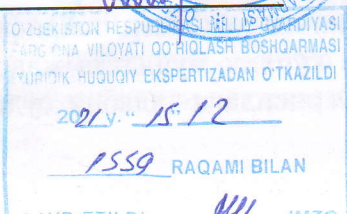 O'ZBEKISTON RESPUBLIKASI MILLIY GVARDIYASI
FARG'ONA VILOYATI QO'RIQLASH BOSHQARMASI
YURIDIK HUQUQIY EKSPERTIZADAN O'TKAZILDI
2021 y. "15" 12
1559 RAQAMI BILAN